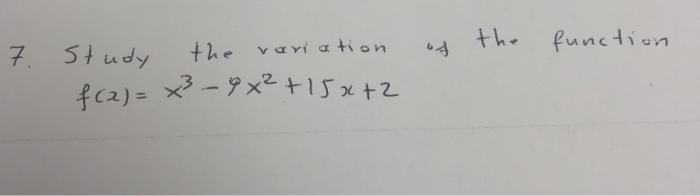 7. Study the variation of the function
f(x) = x³ - 9x² + 15x + 2